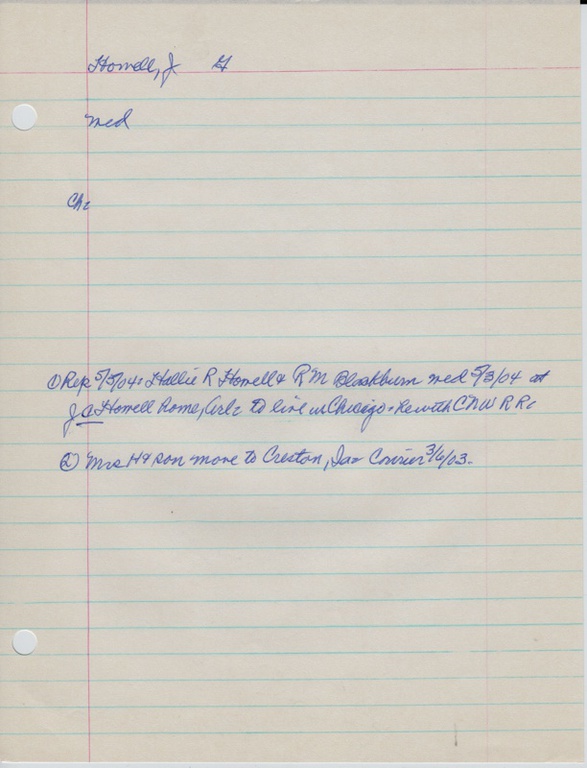 Howell, J G
med
Ch:
① Rep 5/5/04: Hallie R Howell & R M Blackburn med 5/3/04 at
J a Howell home, Arl: to live in Chicago. He with CNW RR:
② Mrs H & son move to Creston, Ia= Courier 3/6/03.